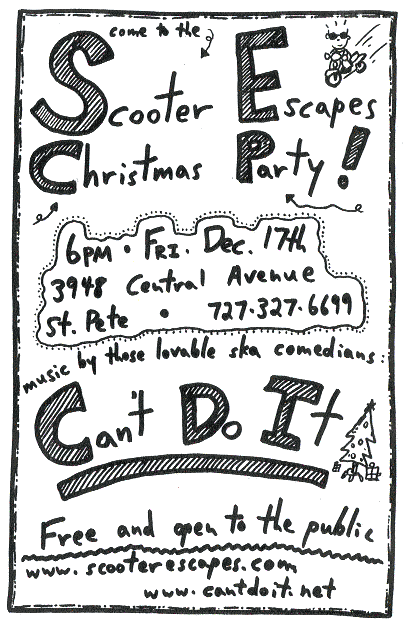 come to the
Scooter Escapes
Christmas Party!
6PM • FRI. Dec. 17th
3948 Central Avenue
St. Pete • 727.327.6699
music by those lovable ska comedians:
Can't Do It
Free and open to the public
www.scooterescapes.com
www.cantdoit.net